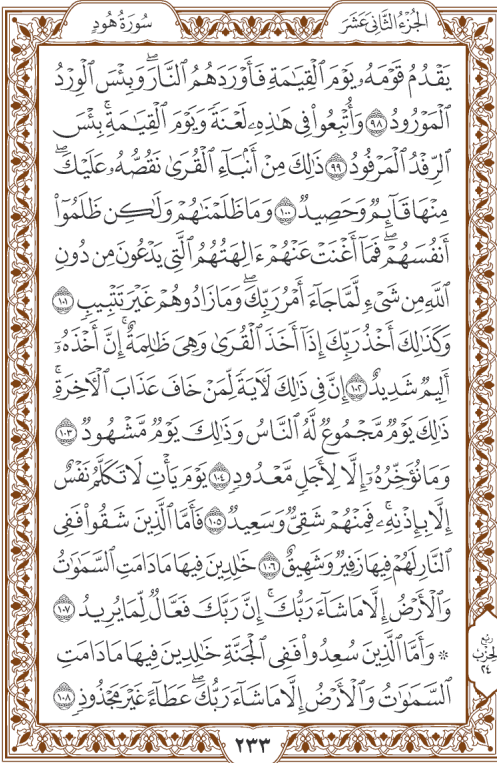 الجُزْءُ الثَّانِي عَشَرَ
سُورَةُ هُودٍ
يَقْدُمُ قَوْمَهُۥ يَوْمَ ٱلْقِيَٰمَةِ فَأَوْرَدَهُمُ ٱلنَّارَۖ وَبِئْسَ ٱلْوِرْدُ
ٱلْمَوْرُودُ ٩٨ وَأُتْبِعُوا۟ فِى هَٰذِهِۦ لَعْنَةً وَيَوْمَ ٱلْقِيَٰمَةِۚ بِئْسَ
ٱلرِّفْدُ ٱلْمَرْفُودُ ٩٩ ذَٰلِكَ مِنْ أَنۢبَآءِ ٱلْقُرَىٰ نَقُصُّهُۥ عَلَيْكَۖ
مِنْهَا قَآئِمٌ وَحَصِيدٌ ١٠٠ وَمَا ظَلَمْنَٰهُمْ وَلَٰكِن ظَلَمُوٓا۟
أَنفُسَهُمْۖ فَمَآ أَغْنَتْ عَنْهُمْ ءَالِهَتُهُمُ ٱلَّتِى يَدْعُونَ مِن دُونِ
ٱللَّهِ مِن شَىْءٍ لَّمَّا جَآءَ أَمْرُ رَبِّكَۖ وَمَا زَادُوهُمْ غَيْرَ تَتْبِيبٍ ١٠١
وَكَذَٰلِكَ أَخْذُ رَبِّكَ إِذَآ أَخَذَ ٱلْقُرَىٰ وَهِىَ ظَٰلِمَةٌۚ إِنَّ أَخْذَهُۥٓ
أَلِيمٌ شَدِيدٌ ١٠٢ إِنَّ فِى ذَٰلِكَ لَءَايَةً لِّمَنْ خَافَ عَذَابَ ٱلْءَاخِرَةِۚ
ذَٰلِكَ يَوْمٌ مَّجْمُوعٌ لَّهُ ٱلنَّاسُ وَذَٰلِكَ يَوْمٌ مَّشْهُودٌ ١٠٣
وَمَا نُؤَخِّرُهُۥٓ إِلَّا لِأَجَلٍ مَّعْدُودٍ ١٠٤ يَوْمَ يَأْتِ لَا تَكَلَّمُ نَفْسٌ
إِلَّا بِإِذْنِهِۦۚ فَمِنْهُمْ شَقِىٌّ وَسَعِيدٌ ١٠٥ فَأَمَّا ٱلَّذِينَ شَقُوا۟ فَفِى
ٱلنَّارِ لَهُمْ فِيهَا زَفِيرٌ وَشَهِيقٌ ١٠٦ خَٰلِدِينَ فِيهَا مَا دَامَتِ ٱلسَّمَٰوَٰتُ
وَٱلْأَرْضُ إِلَّا مَا شَآءَ رَبُّكَۚ إِنَّ رَبَّكَ فَعَّالٌ لِّمَا يُرِيدُ ١٠٧
۞ وَأَمَّا ٱلَّذِينَ سُعِدُوا۟ فَفِى ٱلْجَنَّةِ خَٰلِدِينَ فِيهَا مَا دَامَتِ
ٱلسَّمَٰوَٰتُ وَٱلْأَرْضُ إِلَّا مَا شَآءَ رَبُّكَۖ عَطَآءً غَيْرَ مَجْذُوذٍ ١٠٨
ربع
الحزب
٢٤
٢٣٣